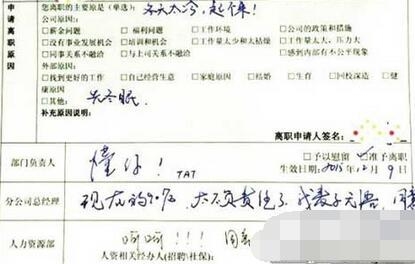 您离职的主要原是(单选): 冬天太冷,起不来!
申请离职原因
公司原因:
□薪金问题 □福利问题 □工作环境 □公司的政策和措施
□没有事业发展机会 □培训和机会 □工作量太少和太枯燥 □工作量太大、压力大
□同事关系不融洽 □与上司关系不融洽 □感到内部有不公平现象
外部原因:
□找到更好的工作 □自己经营生意 □家庭原因 □结婚 □生育 □回校深造 □健
康原因
□其他: 去冬眠.
补充原因说明:
离职申请人签名:
部门负责人 懂你! TAT □予以慰留 准予离职
生效日期: 2015 12月9日
分公司总经理 现在的90后, 太不负责任了,我表示无语,同意
人力资源部 呵呵!!!
人资相关经办人(招聘\社保):